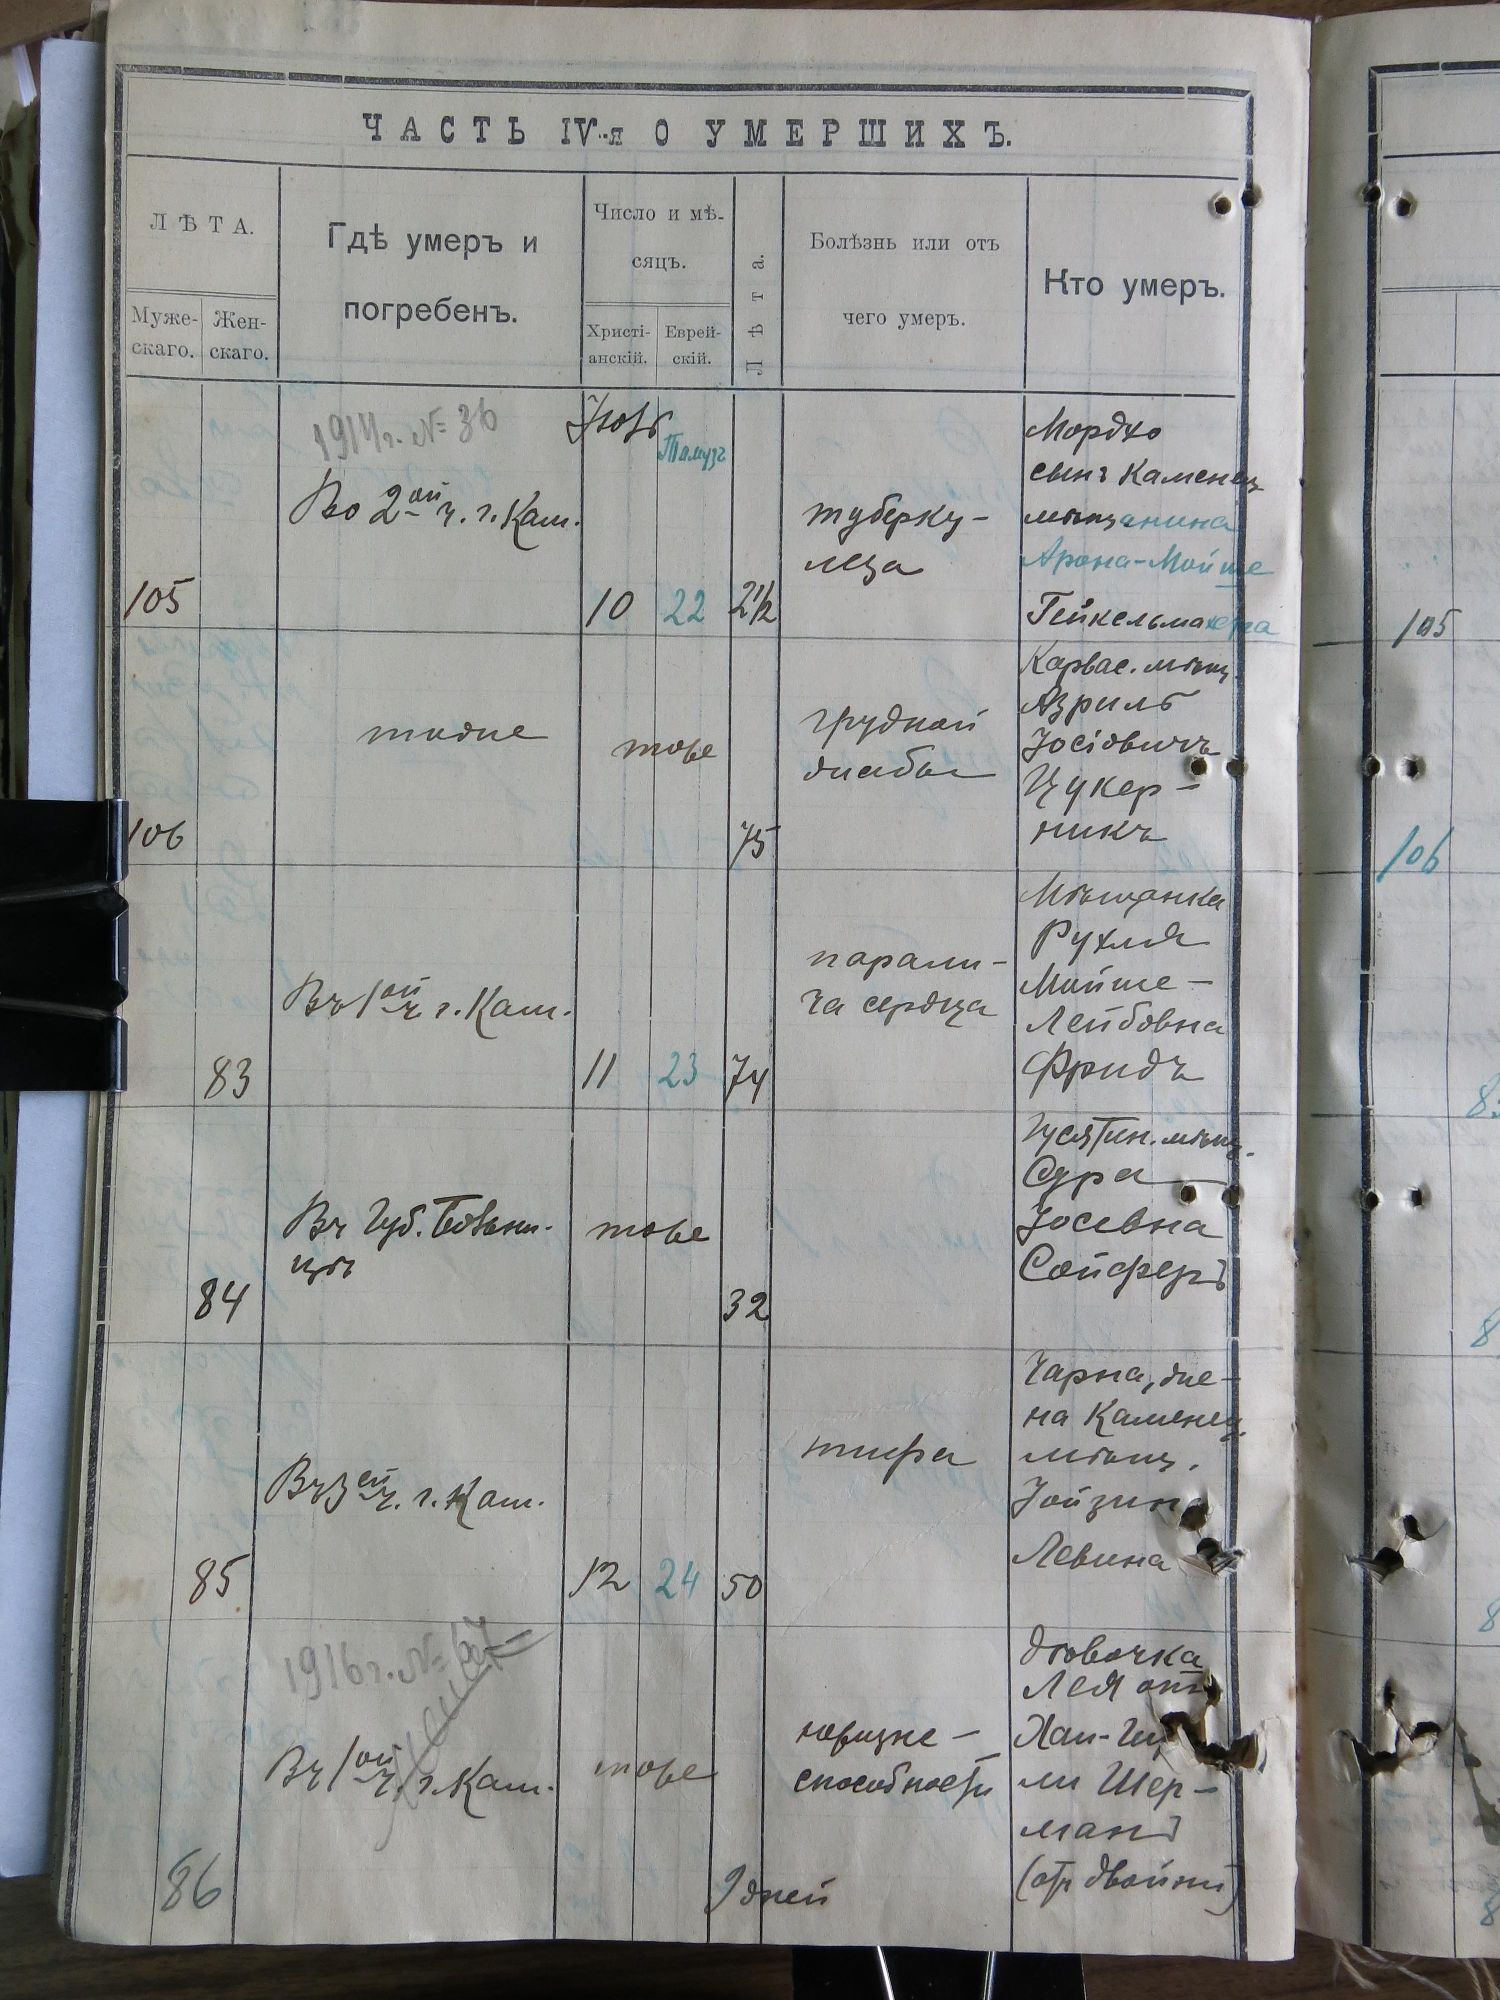 ЧАСТЬ IV-я О УМЕРШИХЪ.
ЛѢТА.
Муже-
скаго.
Жен-
скаго.
Гдѣ умеръ и
погребенъ.
Число и мѣ-
сяцъ.
Христі-
анскій.
Еврей-
скій.
Лѣта.
Болѣзнь или отъ
чего умеръ.
Кто умеръ.
105
1914 г. № 36
Во 2ой ч. г. Кам.
Іюль
10
Тамузъ
22
2 1/2
туберку-
леза
Мордхо
сынъ Каменец
мѣщанина
Арона-Мойше
Гейкельмахера
105
106
тодне
тоже
75
грудной
жабы
Карвас. мѣщ.
Азриль
Іосіовичъ
Цукер-
никъ
106
83
Въ 1ой ч. г. Кам.
11
23
74
парали-
ча сердца
Мѣщанка
Рухля
Мойше-
Лейбовна
Фридъ
84
Въ Губ. Больни-
цѣ
тоже
32
Гусятин. мѣщ.
Сура
Іосевна
Сойферъ
85
Въ 3ей ч. г. Кам.
12
24
50
тифа
Чарна, же-
на Каменец.
мѣщ.
Левина
86
1916 г. №
Въ 1ой ч. г. Кам.
тоже
9 дней
способности
дѣвочка
Лея отъ
Шер-
манъ
(отъ двойни)